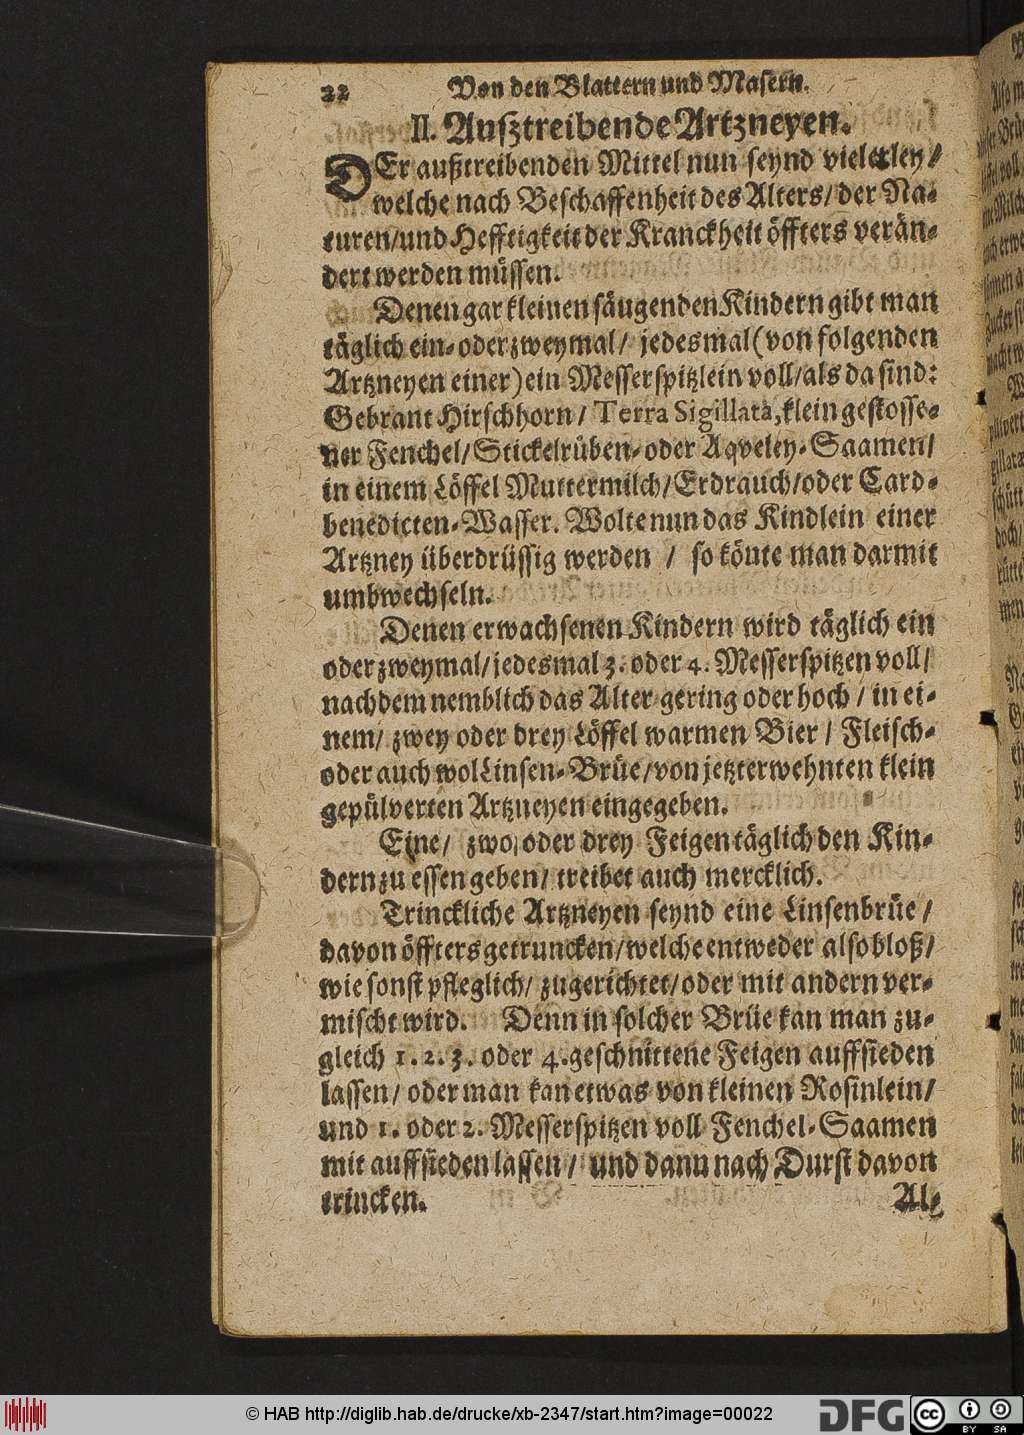 22 Von den Blattern und Masern.
II. Ausztreibende Artzneyen.
DEr außtreibenden Mittel nun seynd vielerley/
welche nach Beschaffenheit des Alters/ der Na-
turen/und Hefftigkeit der Kranckheit öffters verän-
dert werden müssen.
Denen gar kleinen säugenden Kindern gibt man
täglich ein- oder zweymal/ jedesmal (von folgenden
Artzneyen einer) ein Messerspitzlein voll/als da sind:
Gebrant Hirschhorn/ Terra Sigillata, klein gestosse-
ner Fenchel/ Stickelrüben- oder Aqveley-Saamen/
in einem Löffel Muttermilch/ Erdrauch/oder Card-
benedicten-Wasser. Wolte nun das Kindlein einer
Artzney überdrüssig werden / so könte man darmit
umbwechseln.
Denen erwachsenen Kindern wird täglich ein
oder zweymal/ jedesmal 3. oder 4. Messerspitzen voll/
nachdem nemblich das Alter gering oder hoch / in ei-
nem/ zwey oder drey Löffel warmen Bier / Fleisch-
oder auch wol Linsen-Brüe/von jetzterwehnten klein
gepülverten Artzneyen eingegeben.
Eine/ zwo, oder drey Feigen täglich den Kin-
dern zu essen geben/ treibet auch mercklich.
Trinckliche Artzneyen seynd eine Linsenbrüe /
davon öffters getruncken/welche entweder also bloß/
wie sonst pfleglich/ zugerichtet/oder mit andern ver-
mischt wird. Denn in solcher Brüe kan man zu-
gleich 1. 2. 3. oder 4. geschnittene Feigen auffsieden
lassen/ oder man kan etwas von kleinen Rosinlein/
und 1. oder 2. Messerspitzen voll Fenchel-Saamen
mit auffsieden lassen / und dann nach Durst davon
trincken.
Al-
© HAB http://diglib.hab.de/drucke/xb-2347/start.htm?image=00022
DFG
cc
BY SA